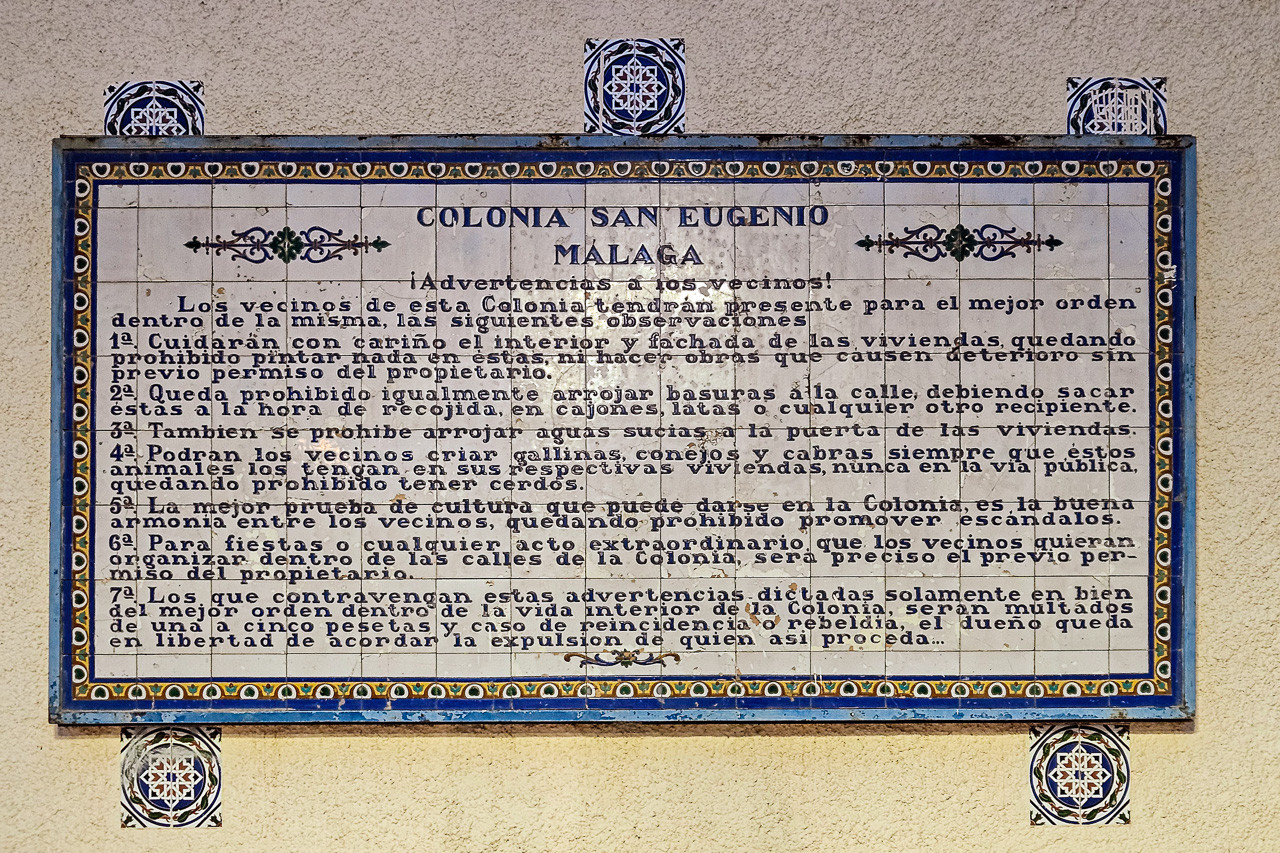 COLONIA SAN EUGENIO
MÁLAGA
¡Advertencias a los vecinos!
Los vecinos de esta Colonia tendrán presente para el mejor orden
dentro de la misma, las siguientes observaciones
1ª. Cuidarán con cariño el interior y fachada de las viviendas, quedando
prohibido pintar nada en éstas, ni hacer obras que causen deterioro sin
previo permiso del propietario.
2ª. Queda prohibido igualmente arrojar basuras á la calle, debiendo sacar
éstas a la hora de recojida, en cajones, latas o cualquier otro recipiente.
3ª. Tambien se prohibe arrojar aguas sucias a la puerta de las viviendas.
4ª. Podrán los vecinos criar gallinas, conejos y cabras siempre que éstos
animales los tengan en sus respectivas viviendas, nunca en la vía pública,
quedando prohibido tener cerdos.
5ª. La mejor prueba de cultura que puede darse en la Colonia, es la buena
armonía entre los vecinos, quedando prohibido promover escándalos.
6ª. Para fiestas o cualquier acto extraordinario que los vecinos quieran
organizar dentro de las calles de la Colonia, será preciso el previo per-
miso del propietario.
7ª. Los que contravengan estas advertencias dictadas solamente en bien
del mejor orden dentro de la vida interior de la Colonia, serán multados
de una a cinco pesetas y caso de reincidencia o rebeldía, el dueño queda
en libertad de acordar la expulsión de quien así proceda...